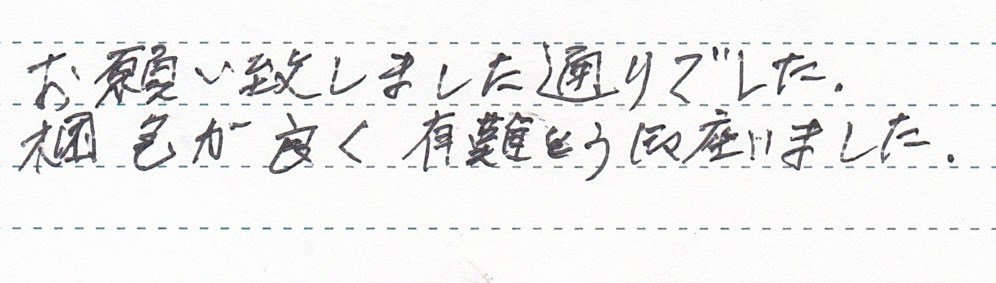 お願い致しました通りでした.
梱包が良く有難とう御座いました.